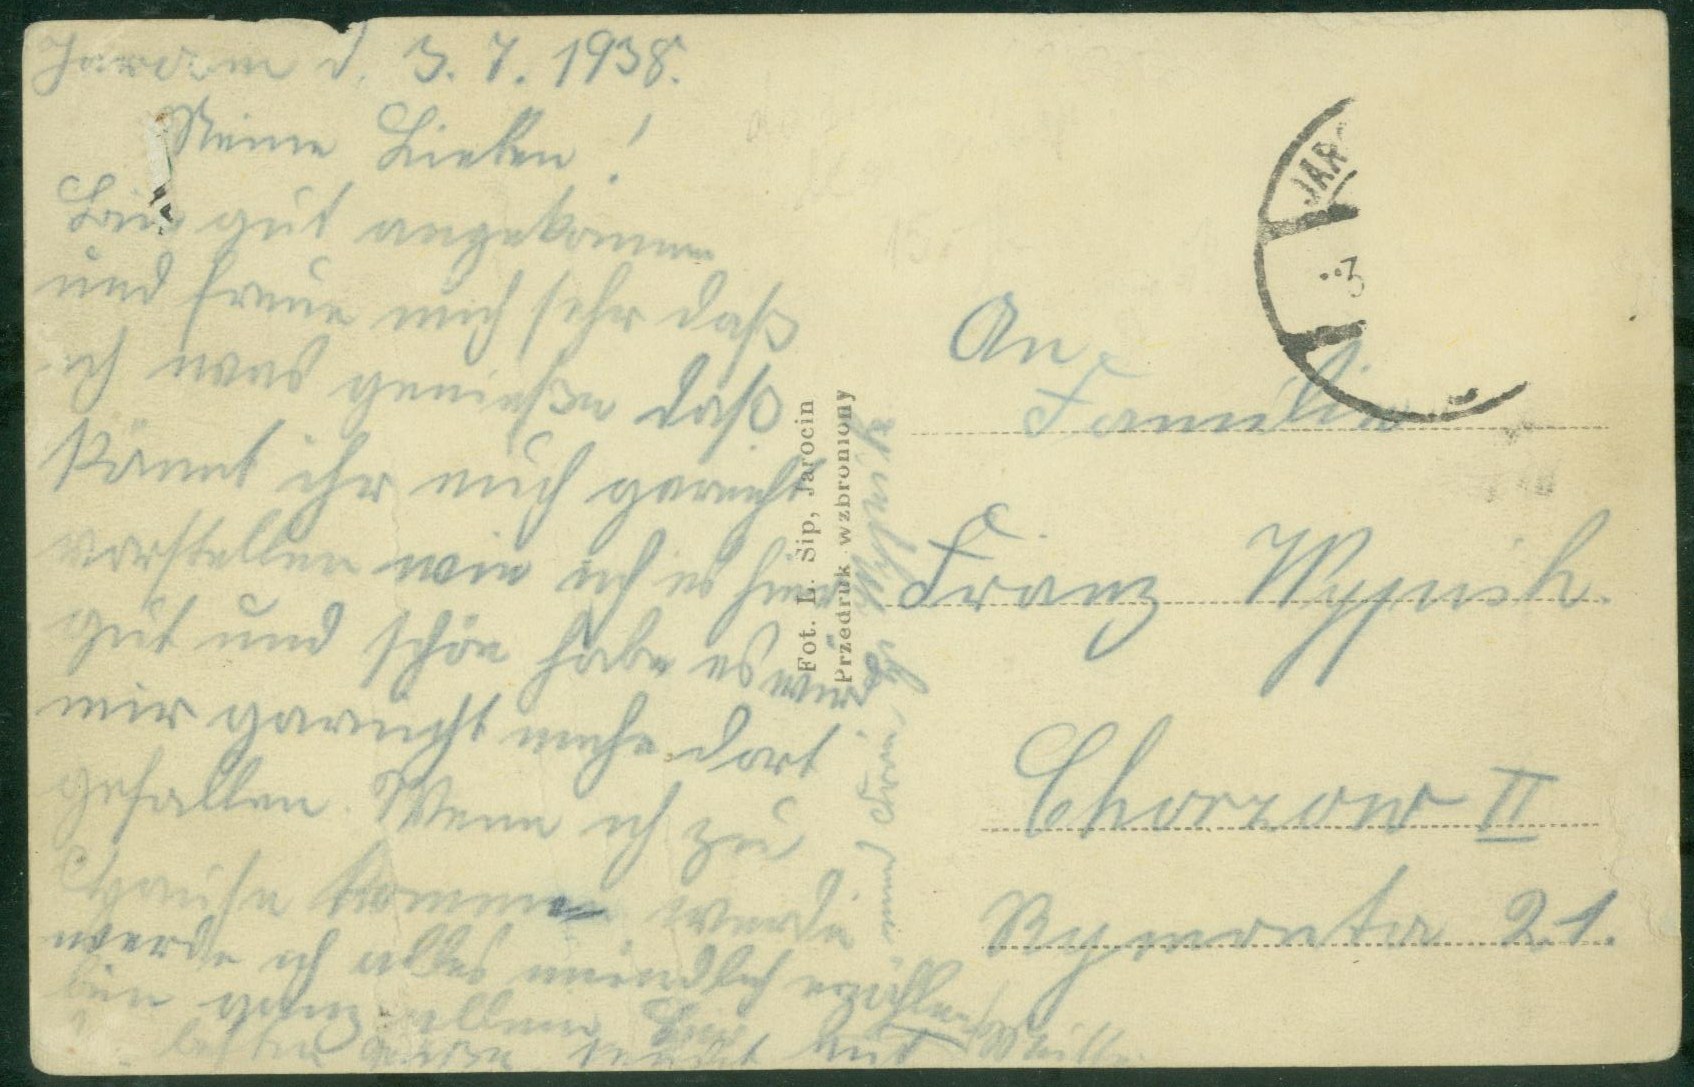 Jarocin d. 3. 7. 1938.
Meine Lieben!
Bin gut angekommen
und freue mich sehr daß
ich was genieße daß
könnt ihr euch garnicht
vorstellen wie ich es hier
gut und schön habe es wird
mir garnicht mehr dort
gefallen. Wenn ich zu
Hause komme werde
werde ich alles mündlich erzählen
bin ganz allein
Grüße
Fot. L. Sip, Jarocin
Przedruk wzbroniony
JAR
3
An
Familie
Franz Wypich
Chorzow II
Rymonta 21.